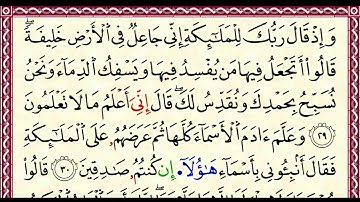 وَإِذْ قَالَ رَبُّكَ لِلْمَلَٰٓئِكَةِ إِنِّى جَاعِلٌ فِى ٱلْأَرْضِ خَلِيفَةً ۖ
قَالُوٓا۟ أَتَجْعَلُ فِيهَا مَن يُفْسِدُ فِيهَا وَيَسْفِكُ ٱلدِّمَآءَ وَنَحْنُ
نُسَبِّحُ بِحَمْدِكَ وَنُقَدِّسُ لَكَ ۖ قَالَ إِنِّىَ أَعْلَمُ مَا لَا تَعْلَمُونَ
٢٩ وَعَلَّمَ ءَادَمَ ٱلْأَسْمَآءَ كُلَّهَا ثُمَّ عَرَضَهُمُۥ عَلَى ٱلْمَلَٰٓئِكَةِ
فَقَالَ أَنۢبِـُٔونِى بِأَسْمَآءِ هَٰٓؤُلَآ إِن كُنتُمُۥ صَٰدِقِينَ ٣٠ قَالُوا۟